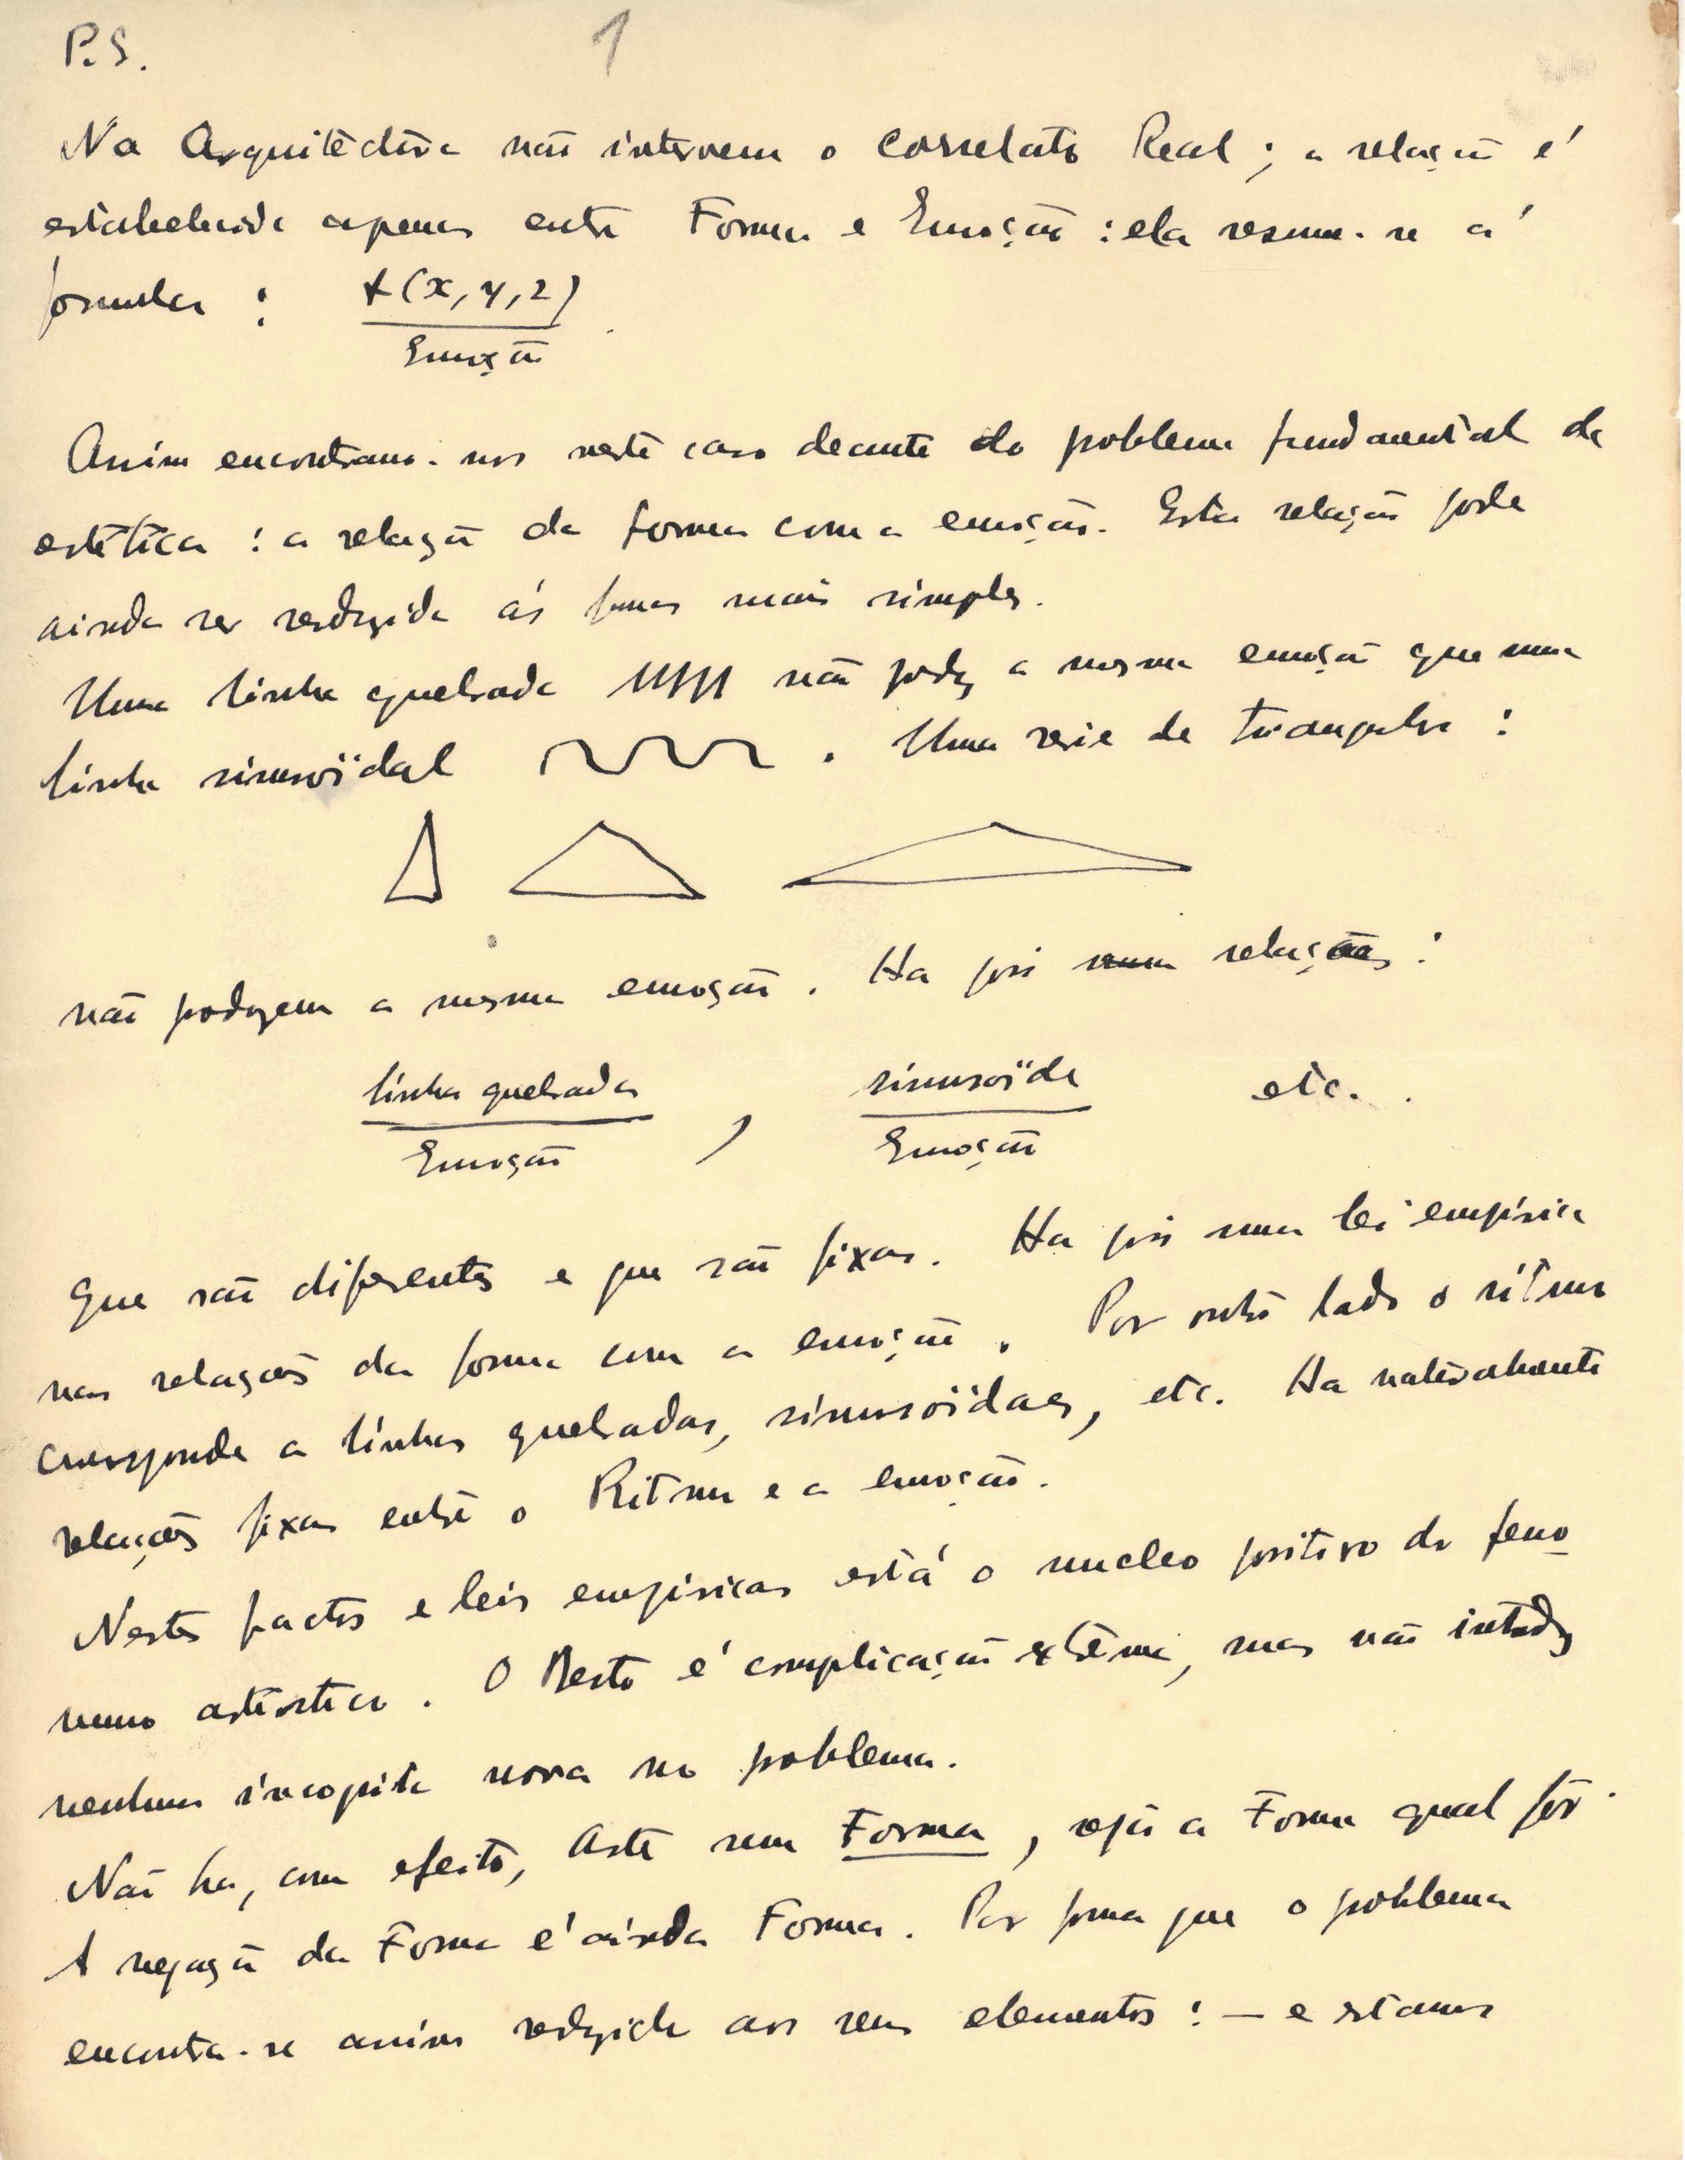 P.S.
1
Na Arquitectura não intervem o correlato Real; a relação é
estabelecida apenas entre Forma e Emoção: ela resume-se á
formula: f(x, y, z)
Emoção
Assim encontramo-nos neste caso deante do problema fundamental da
estética: a relação da forma com a emoção. Esta relação pode
ainda ser reduzida ás formas mais simples.
Uma linha quebrada não produz a mesma emoção que uma
linha sinusoïdal. Uma serie de triangulos:
não produzem a mesma emoção. Ha pois relações:
linha quebrada, sinusoïde etc.
Emoção Emoção
Que são diferentes e que são fixas. Ha pois uma lei empirica
nas relações da forma com a emoção. Por outro lado o ritmo
corresponde a linhas quebradas, sinusoïdaes, etc. Ha naturalmente
relações fixas entre o Ritmo e a emoção.
Nestes factos e leis empiricas está o nucleo positivo do feno
meno artistico. O Resto é complicação extrema, mas não introduz
nenhuma incognita nova no problema.
Não ha, com efeito, Arte sem Forma, seja a Forma qual fôr.
A negação da Forma é ainda Forma. Por forma que o problema
encontra-se assim reduzido aos seus elementos: — e estamos